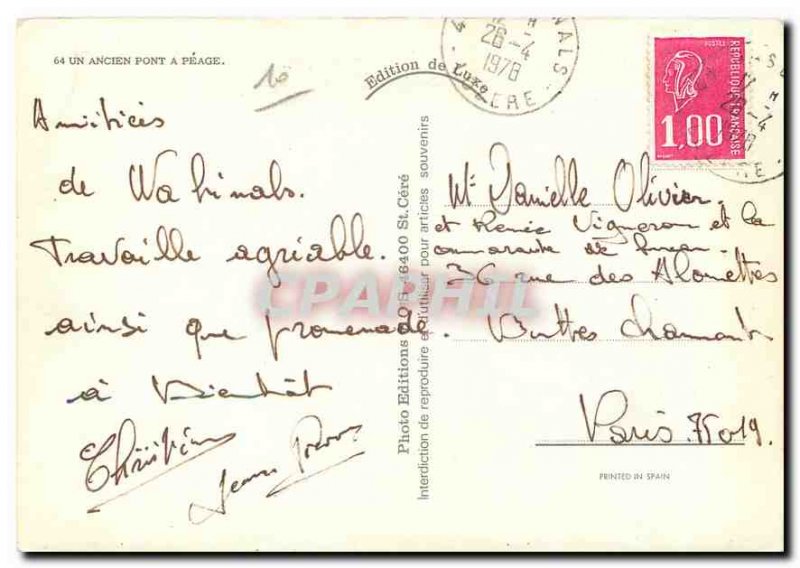 64 UN ANCIEN PONT A PÉAGE.
10
Edition de Luxe
Amitiés
de
Travaille agriable.
ainsi que promenade.
à Bientôt
Christian
Jean
Photo Editions 46400 St. Céré
Interdiction de reproduire et d'utiliser pour articles souvenirs
CPAPHIL
26-4
1976
POSTES
REPUBLIQUE FRANÇAISE
1,00
Mr Danielle Olivier
et Renée Vigneron et la
de
36 rue des Alouettes
Buttes Chaumont
Paris 75019.
PRINTED IN SPAIN